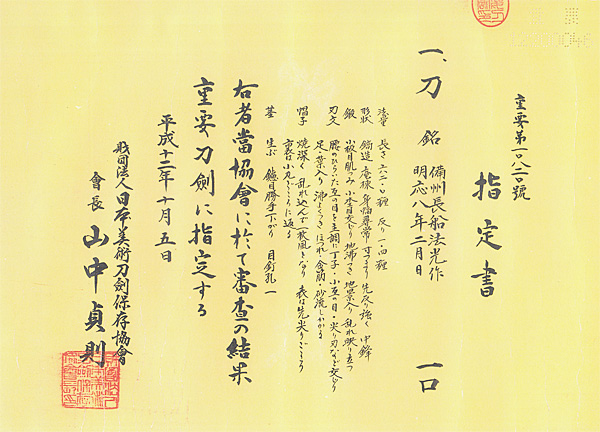 重要第一〇八二〇號
指定書
一、刀 銘 備州長船法光作
明応八年二月日 一口
法量 長さ 六二・〇糎 反り 一・四糎
形状 鎬造 庵棟 身幅尋常 寸つまり 先反り強く 中鋒
鍛 小板目肌つみ 小杢目交じり 地沸つき 地景入り 乱れ映り立つ
刃文 腰のひらいた互の目を主調に丁子・小互の目・尖り刃など交じり
足・葉入り 沸よくつき ほつれ・金筋・砂流しかかる
帽子 焼深く 乱れ込んで一枚風となり 表は先尖りごころ
裏は小丸ごころに返る
茎 生ぶ 鑢目勝手下がり 目釘孔一
右者當協會に於て審査の結果
重要刀劍に指定する
平成十二年十月五日
財団法人日本美術刀劍保存協會
會長 山中貞則